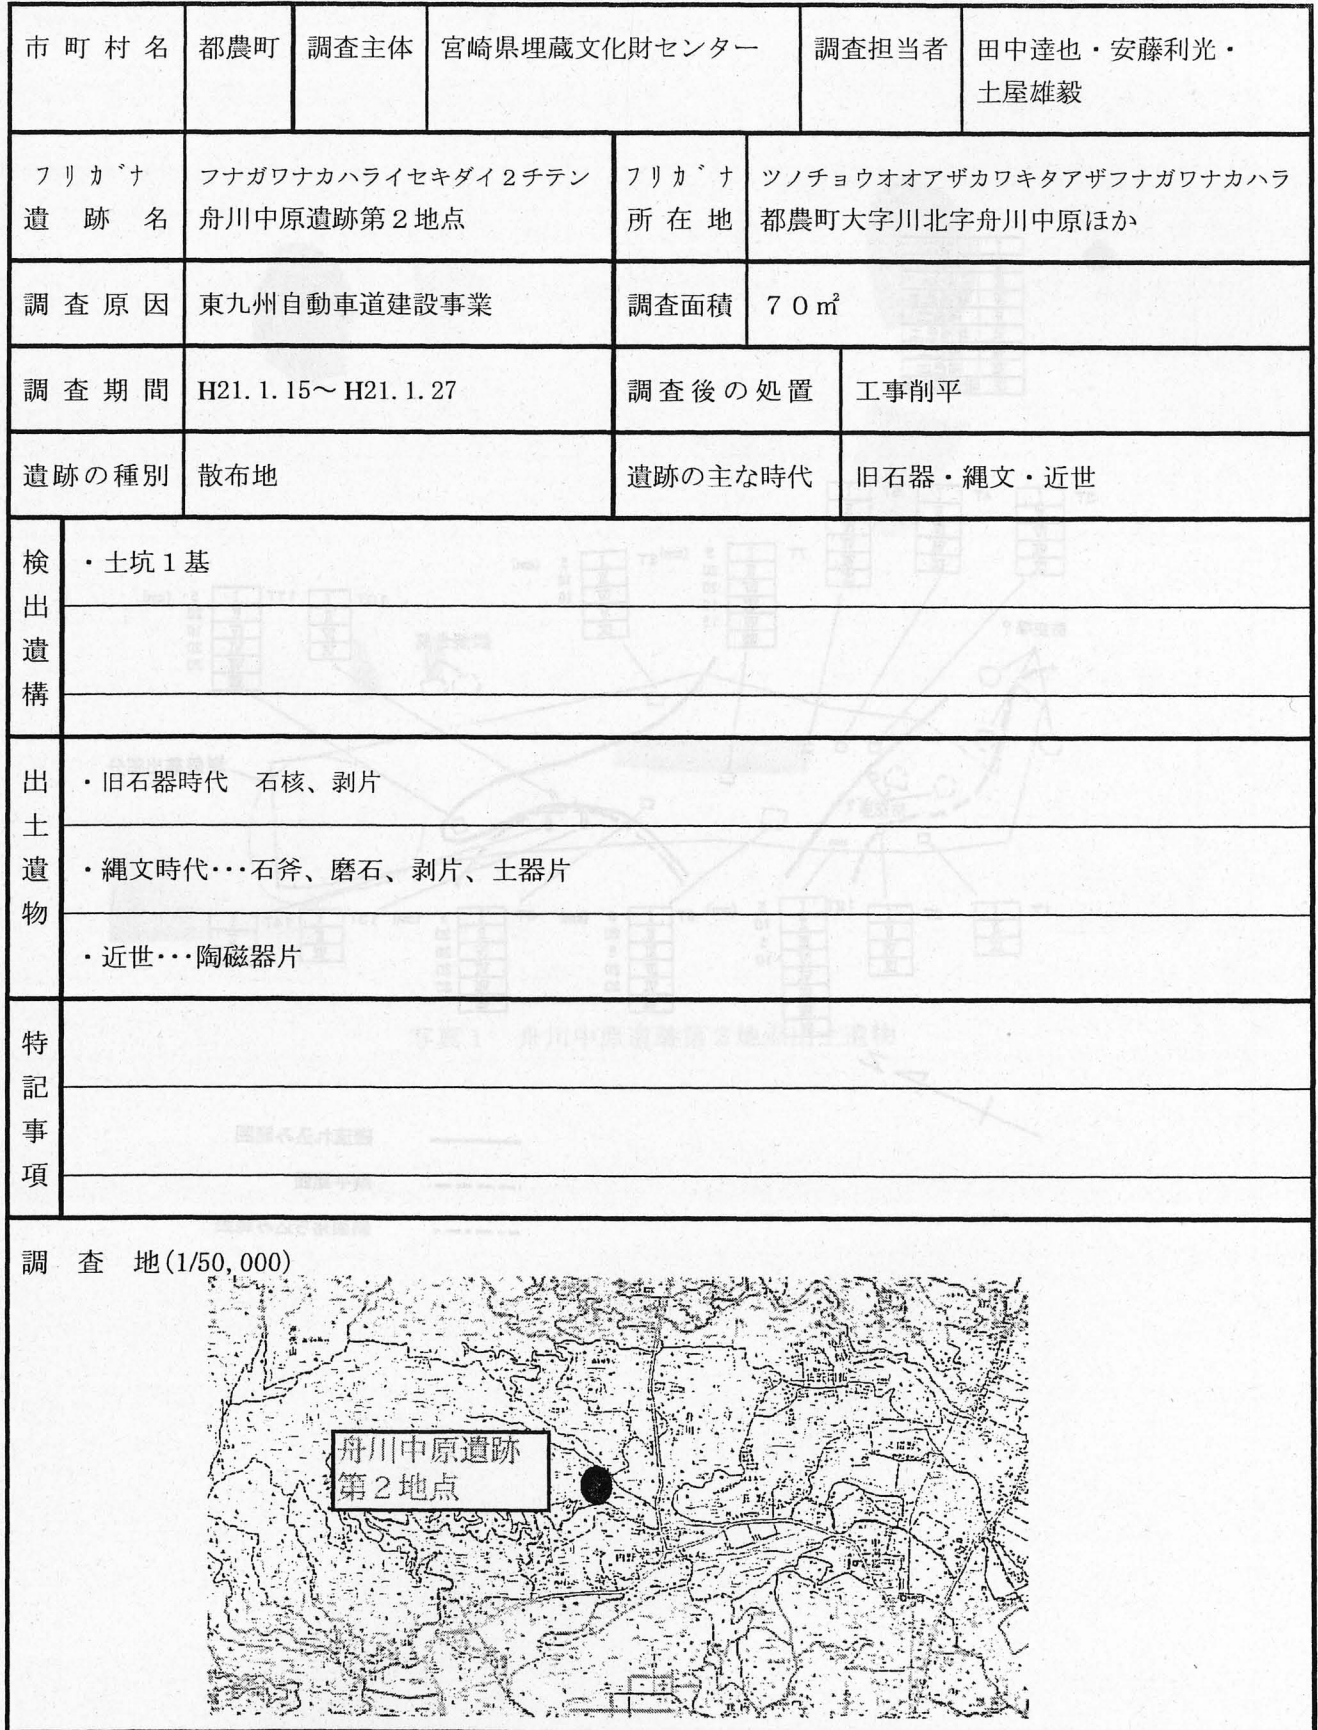 市町村名
都農町
調査主体
宮崎県埋蔵文化財センター
調査担当者
田中達也・安藤利光・
土屋雄毅
フリガナ
遺跡名
フナガワナカハライセキダイ２チテン
舟川中原遺跡第２地点
フリガナ
所在地
ツノチョウオオアザカワキタアザフナガワナカハラ
都農町大字川北字舟川中原ほか
調査原因
東九州自動車道建設事業
調査面積
７０㎡
調査期間
H21.1.15～H21.1.27
調査後の処置
工事削平
遺跡の種別
散布地
遺跡の主な時代
旧石器・縄文・近世
検出遺構
・土坑１基
出土遺物
・旧石器時代　石核、剥片
・縄文時代･･･石斧、磨石、剥片、土器片
・近世･･･陶磁器片
特記事項
調　査　地(1/50,000)
舟川中原遺跡
第２地点